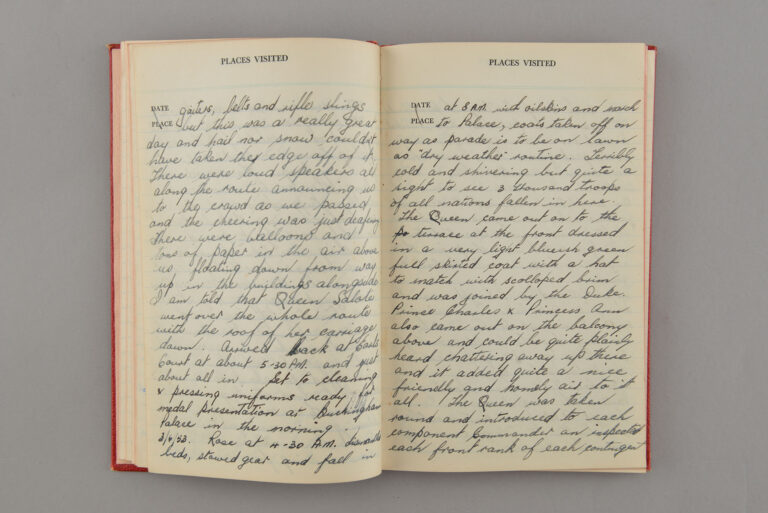 PLACES VISITED
DATE gaiters, belts and rifle slings
PLACE but this was a really great
day and hail nor snow couldn't
have taken they edge off of it.
There were loud speakers all
along the route announcing us
to the crowd as we passed
and the cheering was just deafening
There were balloons and
tons of paper in the air above
us, floating down from way
up in the buildings alongside
I am told that Queen Salote
went over the whole route
with the roof of her carriage
down. Arrived back at Earls
Court at about 5-30 P.M. and just
about all in. Set to cleaning
& pressing uniforms ready for
medal presentation at Buckingham
Palace in the morning.
3/6/53. Rose at 4-30 A.M. dismantled
beds, stowed gear and fall in
PLACES VISITED
DATE at 8 A.M. with oilskins and march
PLACE to Palace, coats taken off on
way as parade is to be on lawn
as "dry weather" routine. Terribly
cold and shivering but quite a
sight to see 3 thousand troops
of all nations fallen in here.
The Queen came out on to the
terrace at the front dressed
in a very light blueish green
full skirted coat with a hat
to match with scolloped brim
and was joined by the Duke.
Prince Charles & Princess Ann
also came out on the balcony
above and could be quite plainly
heard chattering away up there
and it added quite a nice
friendly and homely air to it
all. The Queen was taken
round and introduced to each
component Commander an inspected
each front rank of each contingent